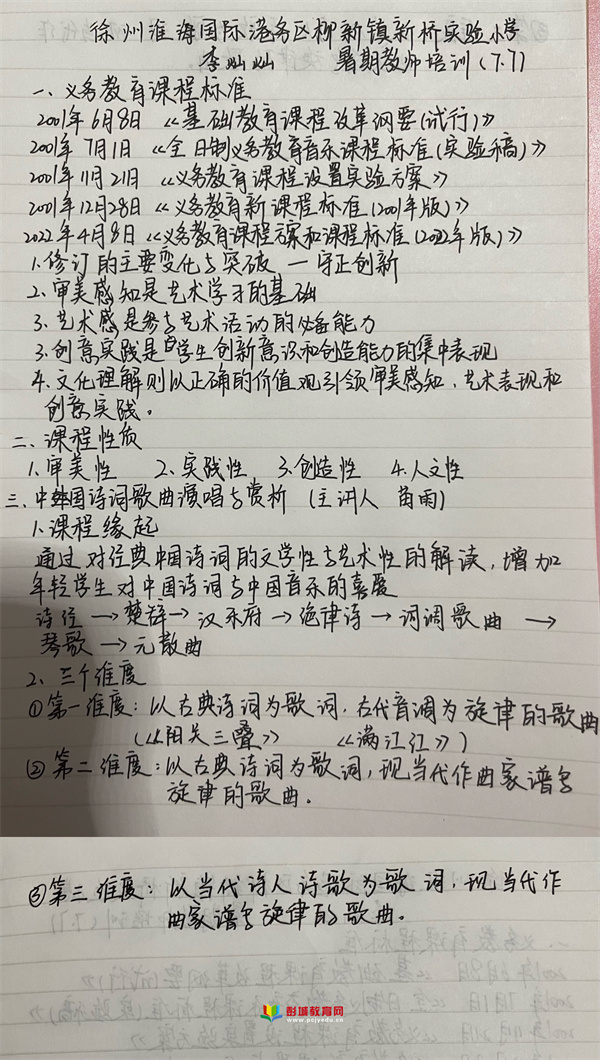 徐州淮海国际港务区柳新镇新桥实验小学
李灿灿 暑期教师培训(7.7)
一、义务教育课程标准
2001年6月8日 《基础教育课程改革纲要(试行)》
2001年7月1日 《全日制义务教育音乐课程标准(实验稿)》
2001年11月21日 《义务教育课程设置实验方案》
2001年12月28日 《义务教育新课程标准(2001年版)》
2022年4月8日《义务教育课程方案和课程标准(2022年版)》
1.修订的主要变化与突破 一守正创新
2.审美感知是艺术学习的基础
3.艺术感是参与艺术活动的必备能力
3.创意实践是学生创新意识和创造能力的集中表现
4.文化理解则以正确的价值观引领审美感知、艺术表现和
创意实践。
二、课程性质
1.审美性 2.实践性 3.创造性 4.人文性
三、中国诗词歌曲演唱与赏析 (主讲人 苗雨)
1.课程缘起
通过对经典中国诗词的文学性与艺术性的解读,增加
年轻学生对中国诗词与中国音乐的喜爱
诗经→楚辞→汉乐府→绝律诗→词调歌曲→
琴歌→元散曲
2、三个维度
①第一维度:以古典诗词为歌词,古代音调为旋律的歌曲
(《阳关三叠》 《满江红》)
②第二维度:以古典诗词为歌词,现当代作曲家谱写
旋律的歌曲.
③第三维度:以当代诗人诗歌为歌词,现当代作
曲家谱写旋律的歌曲。
彭城教育网
www.pcjyedu.cn